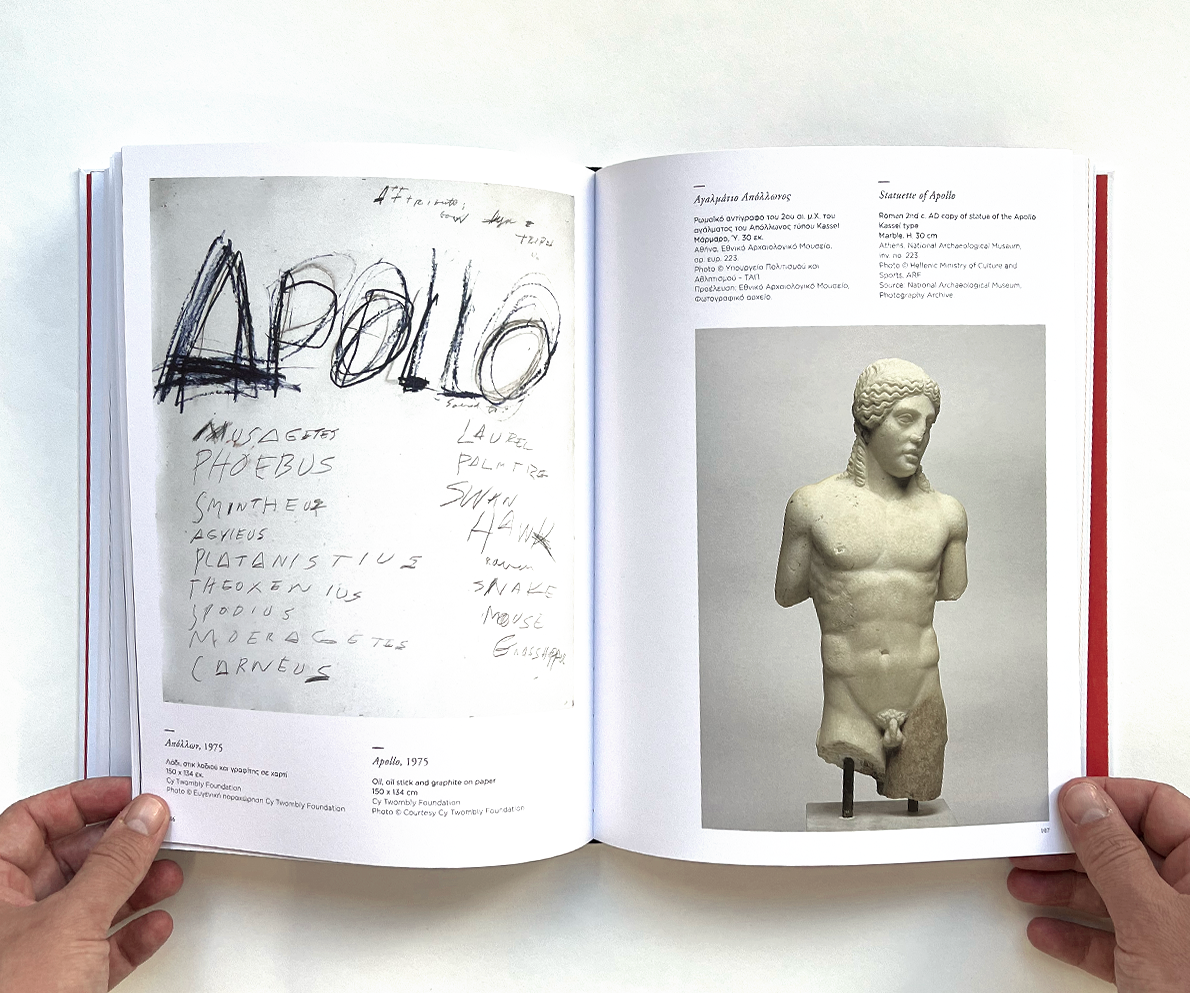 Attributes:
tripod
APOLLO
MUSAGETES
PHOEBUS
SMINTHEUS
AGYIEUS
PLATANISTIUS
THEOXENIUS
SPODIUS
MOERAGETES
CARNEUS
LAUREL
PALM TREE
SWAN
HAWK
raven
SNAKE
MOUSE
GRASSHOPPER
Απόλλων, 1975
Λάδι, στικ λαδιού και γραφίτης σε χαρτί
150 x 134 εκ.
Cy Twombly Foundation
Photo © Ευγενική παραχώρηση Cy Twombly Foundation
Apollo, 1975
Oil, oil stick and graphite on paper
150 x 134 cm
Cy Twombly Foundation
Photo © Courtesy Cy Twombly Foundation
Αγαλμάτιο Απόλλωνος
Ρωμαϊκό αντίγραφο του 2ου αι. μ.Χ. του
αγάλματος του Απόλλωνος τύπου Kassel
Μάρμαρο, Ύ. 30 εκ.
Αθήνα, Εθνικό Αρχαιολογικό Μουσείο,
αρ. ευρ. 223
Photo © Υπουργείο Πολιτισμού και
Αθλητισμού – ΤΑΠ
Προέλευση: Εθνικό Αρχαιολογικό Μουσείο,
Φωτογραφικό αρχείο
Statuette of Apollo
Roman 2nd c. AD copy of statue of the Apollo
Kassel type
Marble, H. 30 cm
Athens, National Archaeological Museum,
inv. no. 223
Photo © Hellenic Ministry of Culture and
Sports, ARF
Source: National Archaeological Museum,
Photography Archive
107